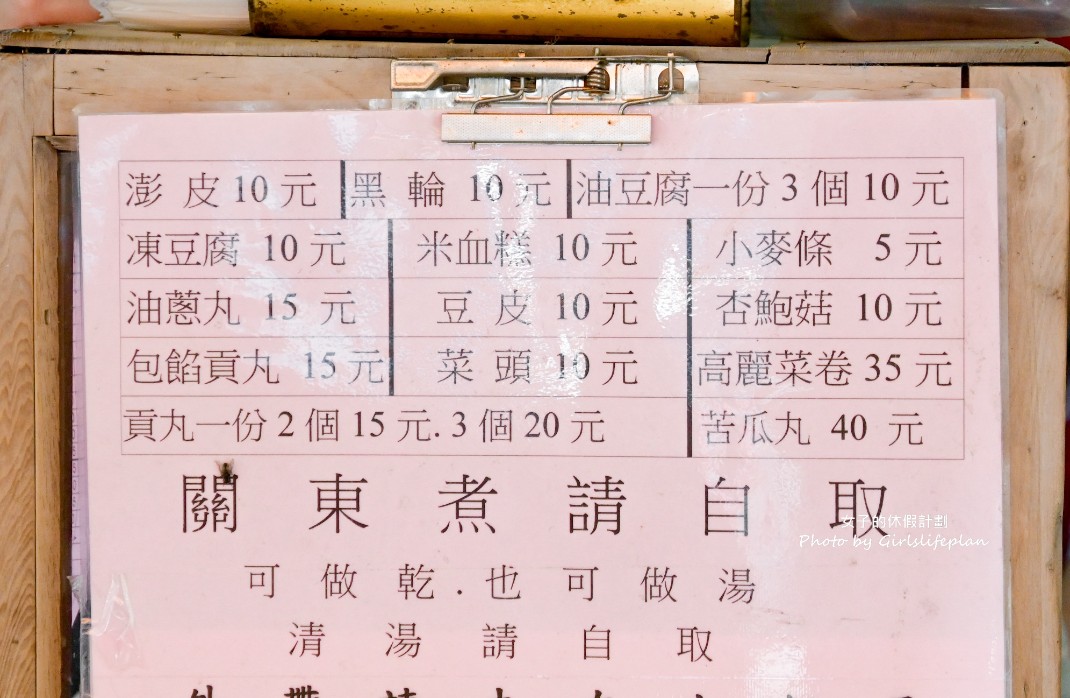 澎皮10元 黑輪10元 油豆腐一份3個10元
凍豆腐10元 米血糕10元 小麥條5元
油蔥丸15元 豆皮10元 杏鮑菇10元
包餡貢丸15元 菜頭10元 高麗菜卷35元
貢丸一份2個15元.3個20元 苦瓜丸40元
關東煮請自取
女子的休假計劃
Photo by Girlslifeplan
可做乾.也可做湯
清湯請自取